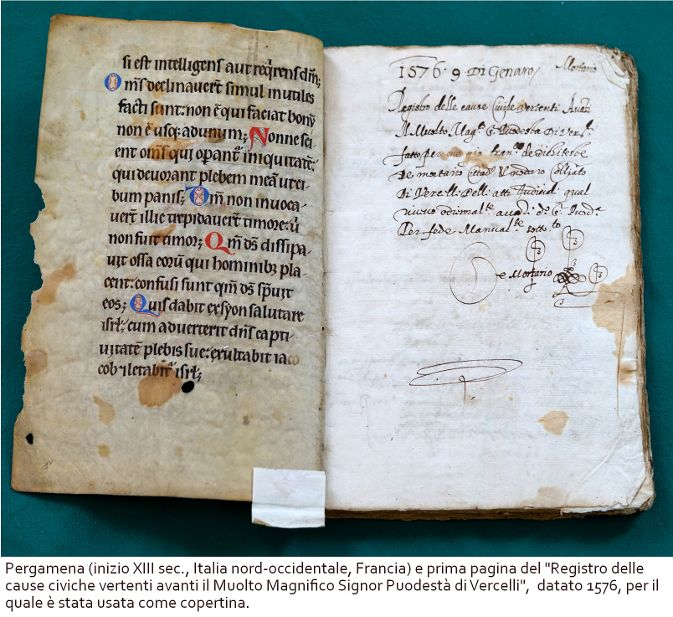 si est intelligens aut reqrens dm̅;
Om̅s declinavert̅ simul inutiles
facti sunt: non e̅ qui faciat bonu̅
non e̅ usq; ad unum; Nonne sci
ent om̅s qui opant̅ iniquitate̅:
qui devorant plebem mea̅ ut ci
bum panis; Dm̅ non invoca
vert̅ illic trepidavert̅ timore: u̅
non fuit timor; Qm̅ ds̅ dissipa
vit ossa eoru̅ qui hominib; pla
cent: confusi sunt qm̅ ds̅ sp̅vit
eos; Quis dabit ex syon salutare
isrl̅; cum adverterit dn̅s capti
vitate̅ plebis sue: exultabit iaco
cob ⁊ letabit̅ isrl̅;
1576 · 9 Di Genaro / Mortario
Registro delle cause Civi vertenti Avati
Il Muolto Mag.co S. Puodestà Di Ver.li
fatto per me
De mortario Notaro Colliato
Di Vercelli Delli atti qual
S. Puod.
Per fede Manual.te sotto
De Mortario
Pergamena (inizio XIII sec., Italia nord-occidentale, Francia) e prima pagina del "Registro delle
cause civiche vertenti avanti il Muolto Magnifico Signor Puodestà di Vercelli", datato 1576, per il
quale è stata usata come copertina.